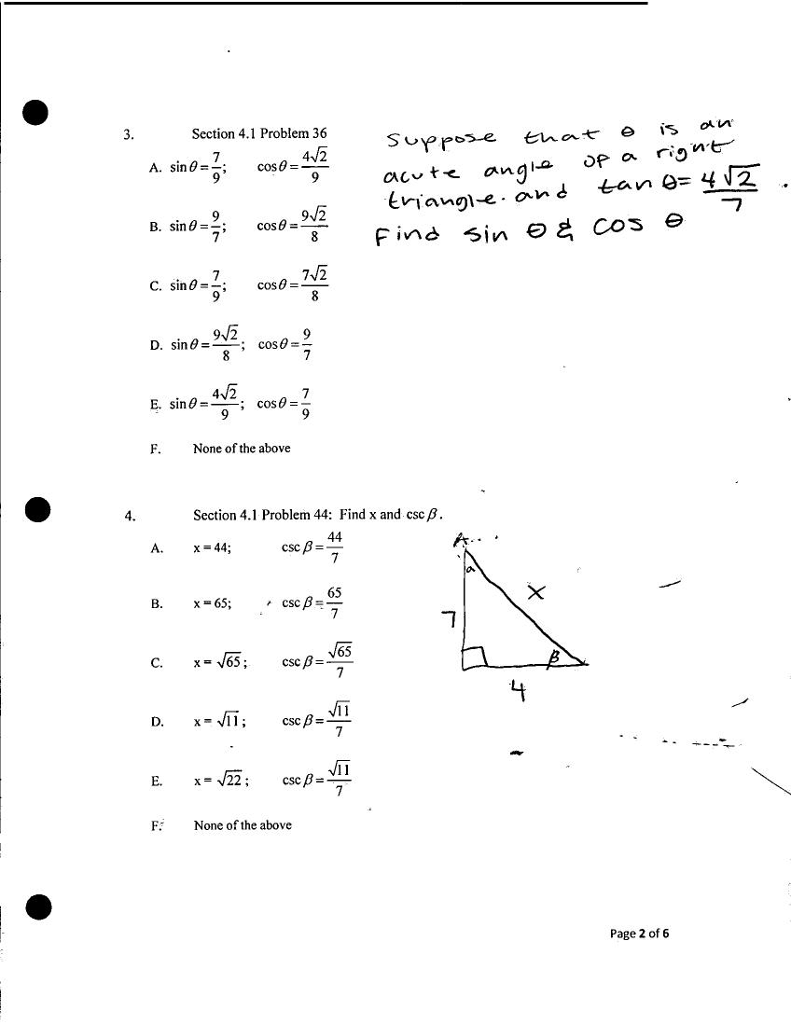 3. Section 4.1 Problem 36
Suppose that θ is an
acute angle of a right
triangle. and tan θ = 4√2/7.
Find sin θ & cos θ
A. sin θ = 7/9; cos θ = 4√2/9
B. sin θ = 9/7; cos θ = 9√2/8
C. sin θ = 7/9; cos θ = 7√2/8
D. sin θ = 9√2/8; cos θ = 9/7
E. sin θ = 4√2/9; cos θ = 7/9
F. None of the above
4. Section 4.1 Problem 44: Find x and csc β.
A. x = 44; csc β = 44/7
B. x = 65; csc β = 65/7
C. x = √65; csc β = √65/7
D. x = √11; csc β = √11/7
E. x = √22; csc β = √11/7
F. None of the above
A
α
x
7
β
4
Page 2 of 6